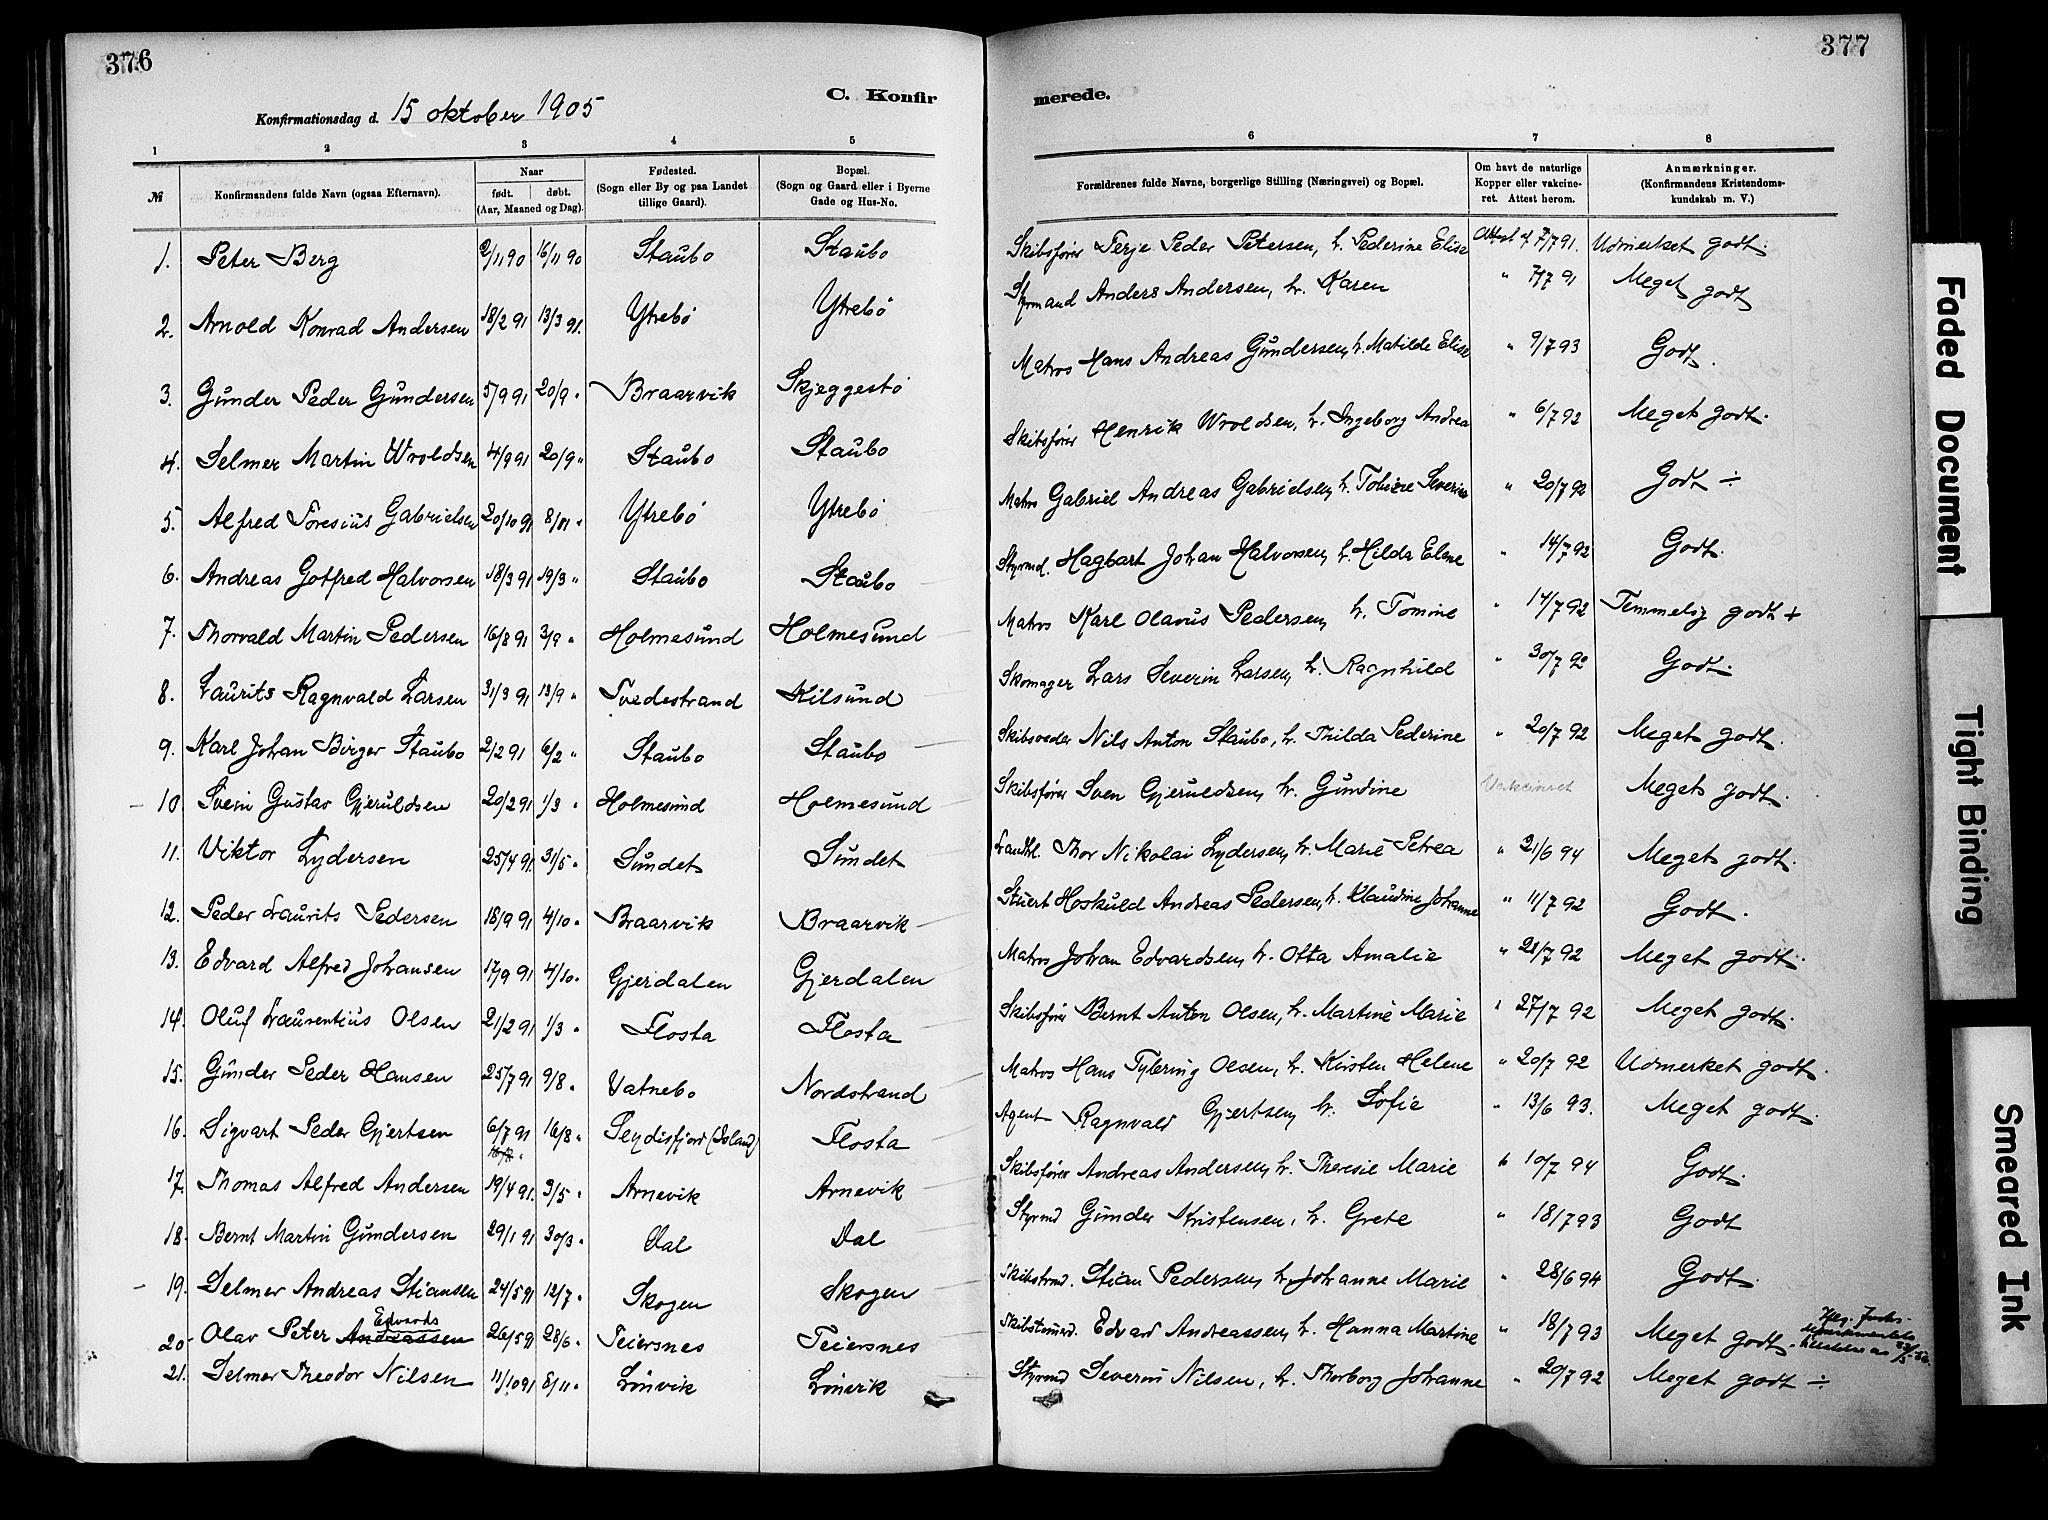 376
C. Konfir
Konfirmationsdag d. 15 oktober 1905
1 2 3 4 5
№ Konfirmandens fulde Navn (ogsaa Efternavn). Naar født. døbt. (Aar, Maaned og Dag). Fødested. (Sogn eller By og paa Landet tillige Gaard). Bopæl. (Sogn og Gaard eller i Byerne Gade og Hus-No.
1. Peter Berg 2/11 90 16/11 90 Staubo Staubo
2. Arnold Konrad Andersen 18/2 91 13/3 91. Ytrebö Ytrebö
3. Gunder Peder Gundersen 5/9 91 20/9 " Braarvik Skjeggestö
4. Selmer Martin Wroldsen 4/9 91 20/9 " Staubo Staubo
5. Alfred Goresius Gabrielsen 20/10 91 8/11 " Ytrebö Ytrebö
6. Andreas Gotfred Halvorsen 18/3 91 19/3 " Staubo Staubo
7. Thorvald Martin Pedersen 16/8 91 3/9 " Holmesund Holmesund
8. Laurits Ragnvald Larsen 31/3 91 13/9 " Tvedestrand Kilsund
9. Karl Johan Birger Staubo 2/2 91 6/2 " Staubo Staubo
10. Svein Gustav Gjeruldsen 20/2 91 1/3 " Holmesund Holmesund
11. Viktor Lydersen 25/4 91. 31/5 " Sundet Sundet
12. Peder Laurits Pedersen 18/9 91 4/10 " Braarvik Braarvik
13. Edvard Alfred Johansen 17/9 91 4/10 " Gjerdalen Gjerdalen
14. Oluf Laurentius Olsen 21/2 91 1/3 " Flosta Flosta
15. Gunder Peder Hansen 25/7 91 9/8 " Vatnebo Nordstrand
16. Sigvart Peder Gjertsen 6/7 91 16/8 " Seydisfjord (Island) Flosta
17. Thomas Alfred Andersen 19/4 91. 3/5 " Arnevik Arnevik
18. Bernt Martin Gundersen 29/1 91 30/3 " Dal Dal
19. Selmer Andreas Stiansen 24/5 91 12/7 " Skogen Skogen
Edvards
20. Olav Peter Andreassen 26/5 91 28/6 " Teiersnes Teiersnes
21. Selmer Theodor Nilsen 11/10 91 8/11 " Lönvik Lönvik
377
merede.
6 7 8
Forældrenes fulde Navne, borgerlige Stilling (Næringsvei) og Bopæl. Om havt de naturlige Kopper eller vakcineret. Attest herom. Anmærkninger. (Konfirmandens Kristendomskundskab m. V.)
Skibsfører Terje Peder Petersen, h. Pederine Elise Attest af 7/7 91. Udmerket godt.
Styrmand Anders Andersen, h. Karen " 7/7 91 Meget godt
Matros Hans Andreas Gundersen, h. Matilde Elise " 9/7 93 Godt.
Skibsfører Henrik Wroldsen, h. Ingeborg Andrea " 6/7 92 Meget godt.
Matros Gabriel Andreas Gabrielsen, h. Tobine Severine " 20/7 92 Godt ÷
Styrmd. Hagbart Johan Halvorsen, h. Hilda Elene " 14/7 92 Godt.
Matros Karl Olavus Pedersen, h. Tomine " 14/7 92 Temmelig godt +
Skomager Lars Severin Larsen, h. Ragnhild " 30/7 92 Godt.
Skibsreder Nils Anton Staubo, h. Thilda Pederine " 20/7 92 Meget godt.
Skibsfører Sven Gjeruldsen, h. Gundine Vakcineret Meget godt.
Landhl. Thor Nikolai Lydersen, h. Marie Petrea " 21/6 94 Meget godt.
Stuert Hoskuld Andreas Pedersen, h. Klaudine Johanne " 11/7 92 Godt.
Matros Johan Edvardsen, h. Otta Amalie " 21/7 92 Meget godt.
Skibsfører Bernt Anton Olsen, h. Martine Marie " 27/7 92 Meget godt.
Matros Hans Tylering Olsen, h. Kirsten Helene " 20/7 92 Udmerket godt.
Agent Ragnvald Gjertsen, h. Sofie " 13/6 93. Meget godt.
Skibsfører Andreas Andersen, h. Theresie Marie " 10/7 94 Godt.
Styrmd Gunder Kristensen, h. Grete " 18/7 93 Godt
Skibstmd. Stian Pedersen, h. Johanne Marie " 28/6 94 Godt.
Skibstmmd. Edvard Andreassen, h. Hanna Martine " 18/7 93 Meget godt.
Styrmd Severin Nilsen, h. Thorborg Johanne " 20/7 92 Meget godt ÷
Faded Document
Tight Binding
Smeared Ink